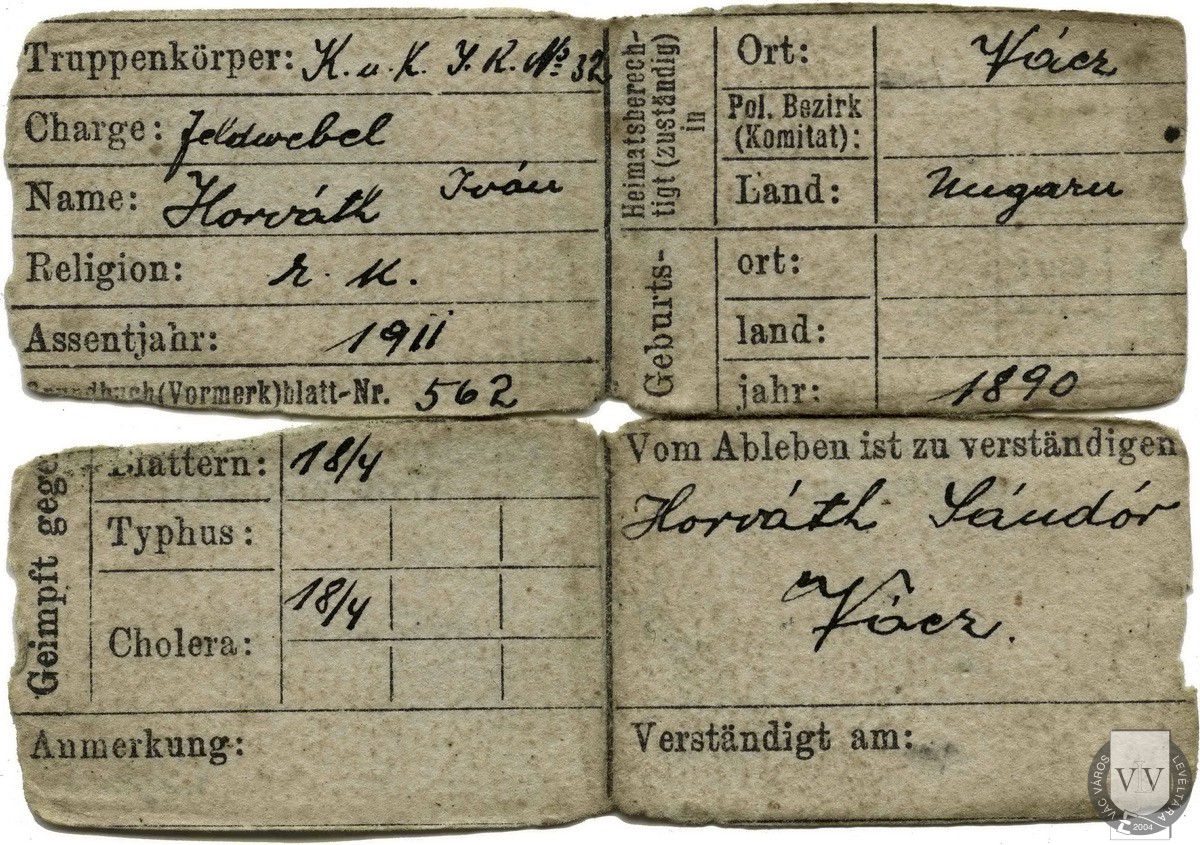 Truppenkörper: K. u. K. I. R. No 32
Charge: feldwebel
Name: Horváth Iván
Religion: r. k.
Assentjahr: 1911
Grundbuch(Vormerk)blatt-Nr. 562
Heimatsberech-
tigt (zuständig)
in
Ort: Vácz
Pol. Bezirk
(Komitat):
Land: Ungarn
Geburts-
ort:
land:
jahr: 1890
Geimpft gege
Blattern: 18/4
Typhus:
Cholera: 18/4
Anmerkung:
Vom Ableben ist zu verständigen
Horváth Sándór
Vácz.
Verständigt am:
VÁC VÁROS LEVÉLTÁRA
VLV
2004